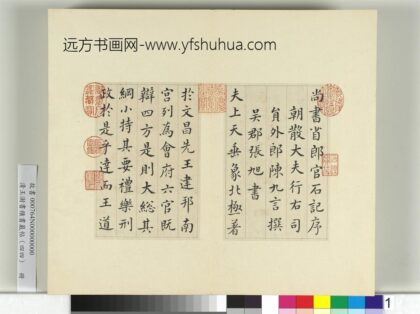 远方书画网-www.yfshuhua.com
尚書省郎官石記序
朝散大夫行右司
貟外郎陳九言撰
吳郡張旭書
夫上天垂象北極著
於文昌先王建邦南
宮列為會府六官既
辯四方是則大總其
綱小持其要禮樂刑
政於是乎達而王道
1